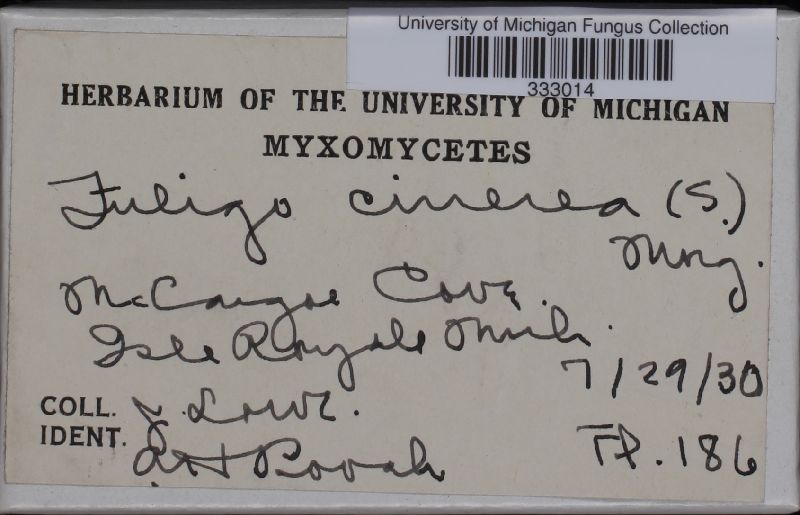 University of Michigan Fungus Collection
333014
HERBARIUM OF THE UNIVERSITY OF MICHIGAN
MYXOMYCETES
Fuligo cinerea (S.)
Morg.
McCargoe Cove.
Isle Royale Mich.
7/29/30
COLL. J. Lowe.
IDENT. AH Povah
Fp. 186